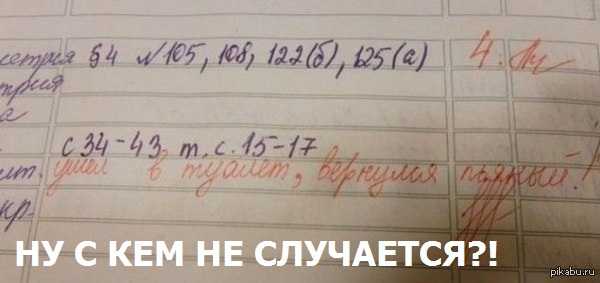 метрия §4 №105, 108, 122(б), 125(а) 4.
трия
а
с 34-43, т. с. 15-17
ит. ушел в туалет, вернулся пьяный!
кр.
НУ С КЕМ НЕ СЛУЧАЕТСЯ?!
pikabu.ru